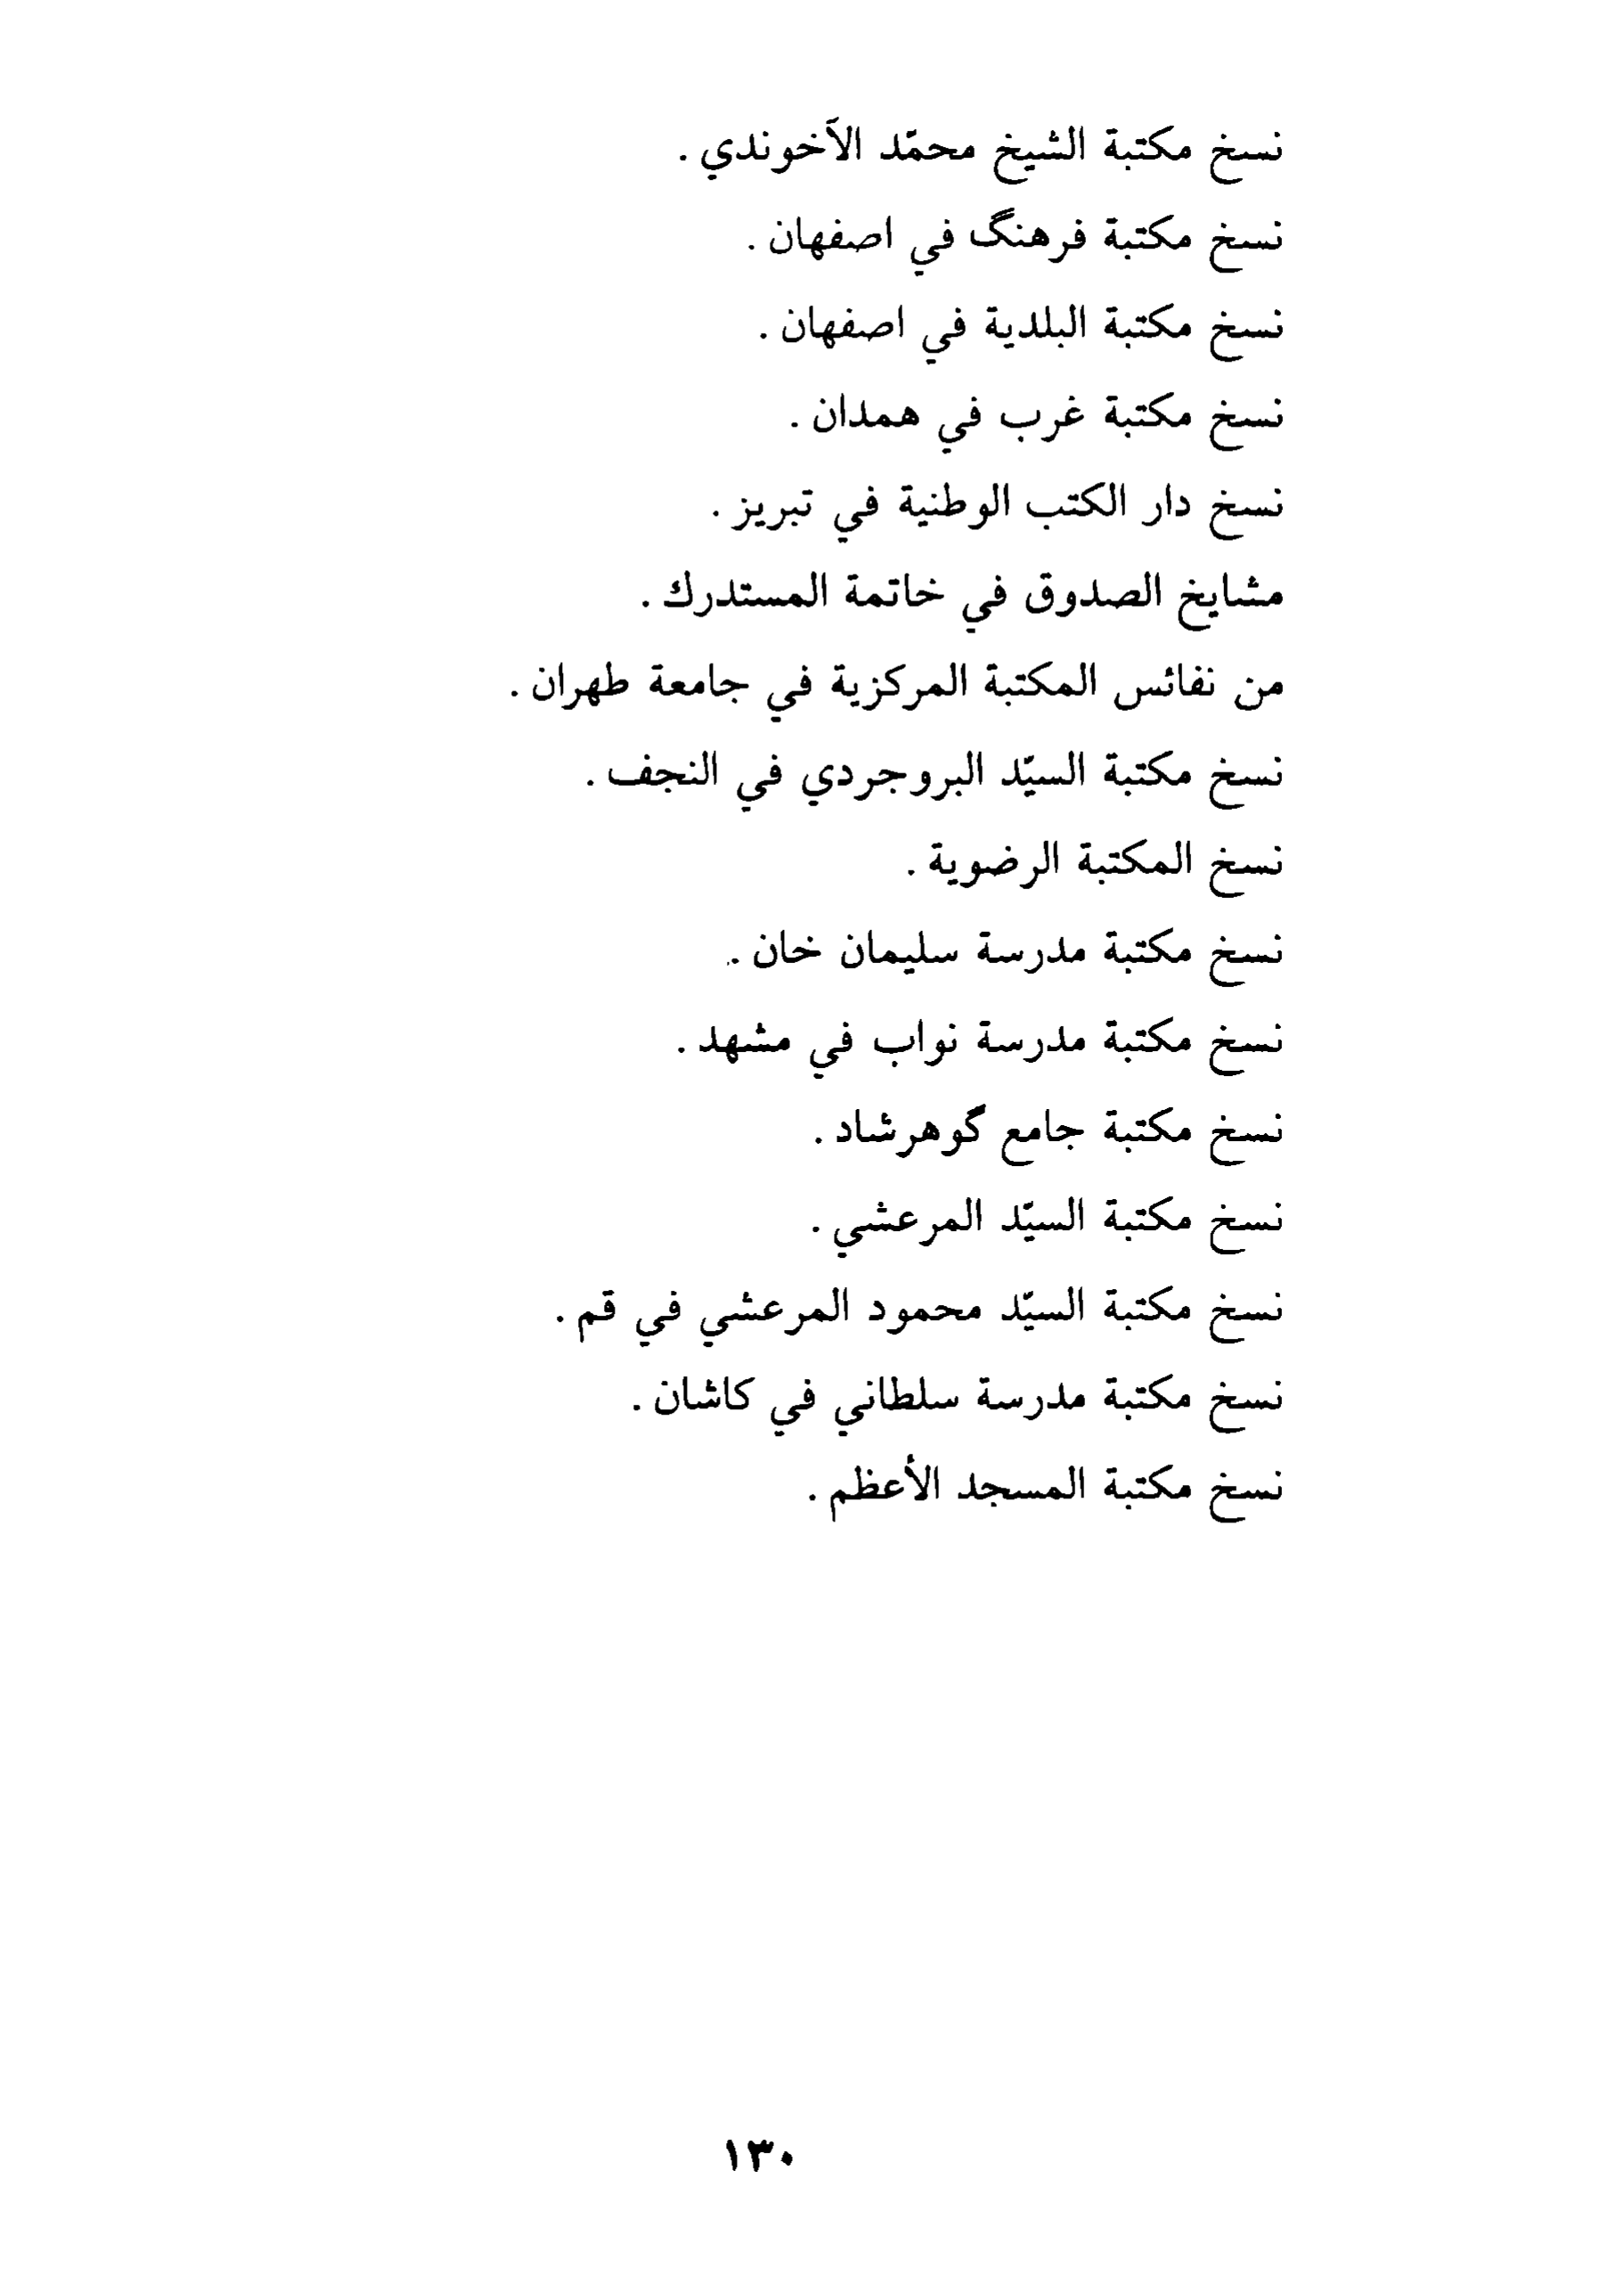 نسخ مكتبة الشيخ محمّد الآخوندي .
نسخ مكتبة فرهنگ في اصفهان .
نسخ مكتبة البلدية في اصفهان .
نسخ مكتبة غرب في همدان .
نسخ دار الكتب الوطنية في تبريز .
مشايخ الصدوق في خاتمة المستدرك .
من نفائس المكتبة المركزية في جامعة طهران .
نسخ مكتبة السيّد البروجردي في النجف .
نسخ المكتبة الرضوية .
نسخ مكتبة مدرسة سليمان خان .
نسخ مكتبة مدرسة نواب في مشهد .
نسخ مكتبة جامع گوهرشاد .
نسخ مكتبة السيّد المرعشي .
نسخ مكتبة السيّد محمود المرعشي في قم .
نسخ مكتبة مدرسة سلطاني في كاشان .
نسخ مكتبة المسجد الأعظم .
١٣٠